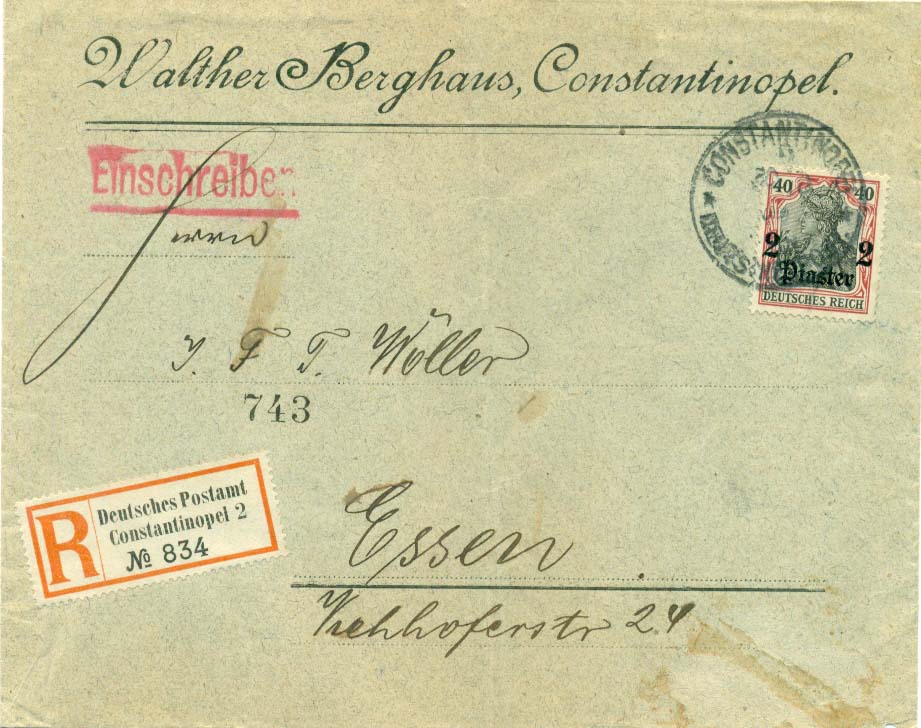 Walther Berghaus, Constantinopel.
Einschreiben
CONSTANTINOPEL
40 40
2 2
Piaster
DEUTSCHES REICH
Herrn
J. F. T. Wöller
743
R
Deutsches Postamt
Constantinopel 2
№ 834
Essen
24